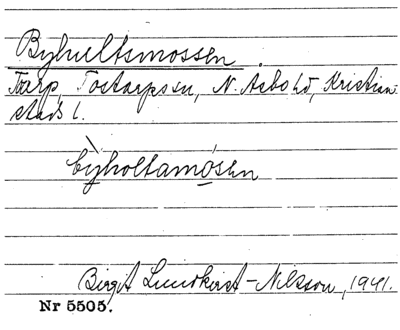 Byhultsmossen
Torp, Tostarps sn, N. Åsbo hd, Kristian-
stads l.
bỳholtamósen
Birgit Lundkvist-Nilsson, 1941.
Nr 5505.